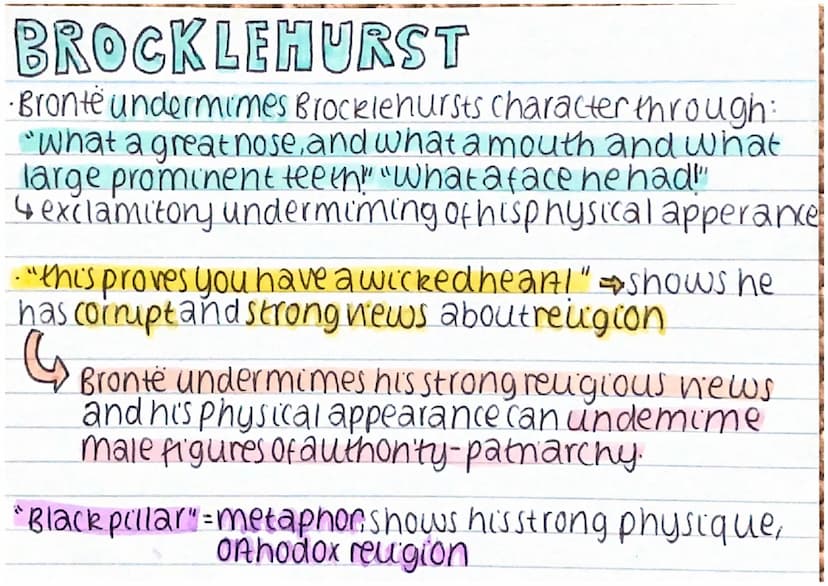 BROCKLEHURST
·Brontë undermimes Brocklehursts character through:
"What a great nose, and what a mouth and what
large prominent teeth!" "What a face he had!"
↳ exclamitory undermiming of his physical apperance
·"this proves you have a wicked heart" ⇒ shows he
has corrupt and strong views about religion
Brontë undermimes his strong religious views
and his physical appearance can undemime
male figures of authority-patriarchy.
"Black pillar" = metaphor: shows his strong physique,
orthodox religion